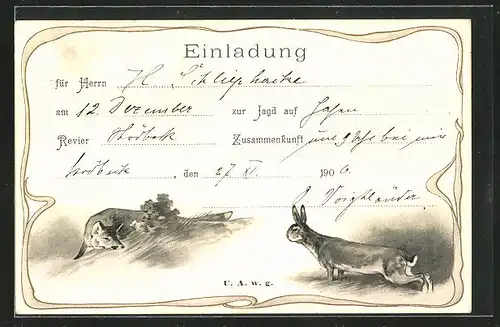 Einladung
für Herrn H. Schliephacke
am 12. Dezember zur Jagd auf Hasen
Revier Ströbeck Zusammenkunft um 9 Uhr bei mir
Ströbeck, den 27. XI. 1906.
Voigtländer
U. A. w. g.